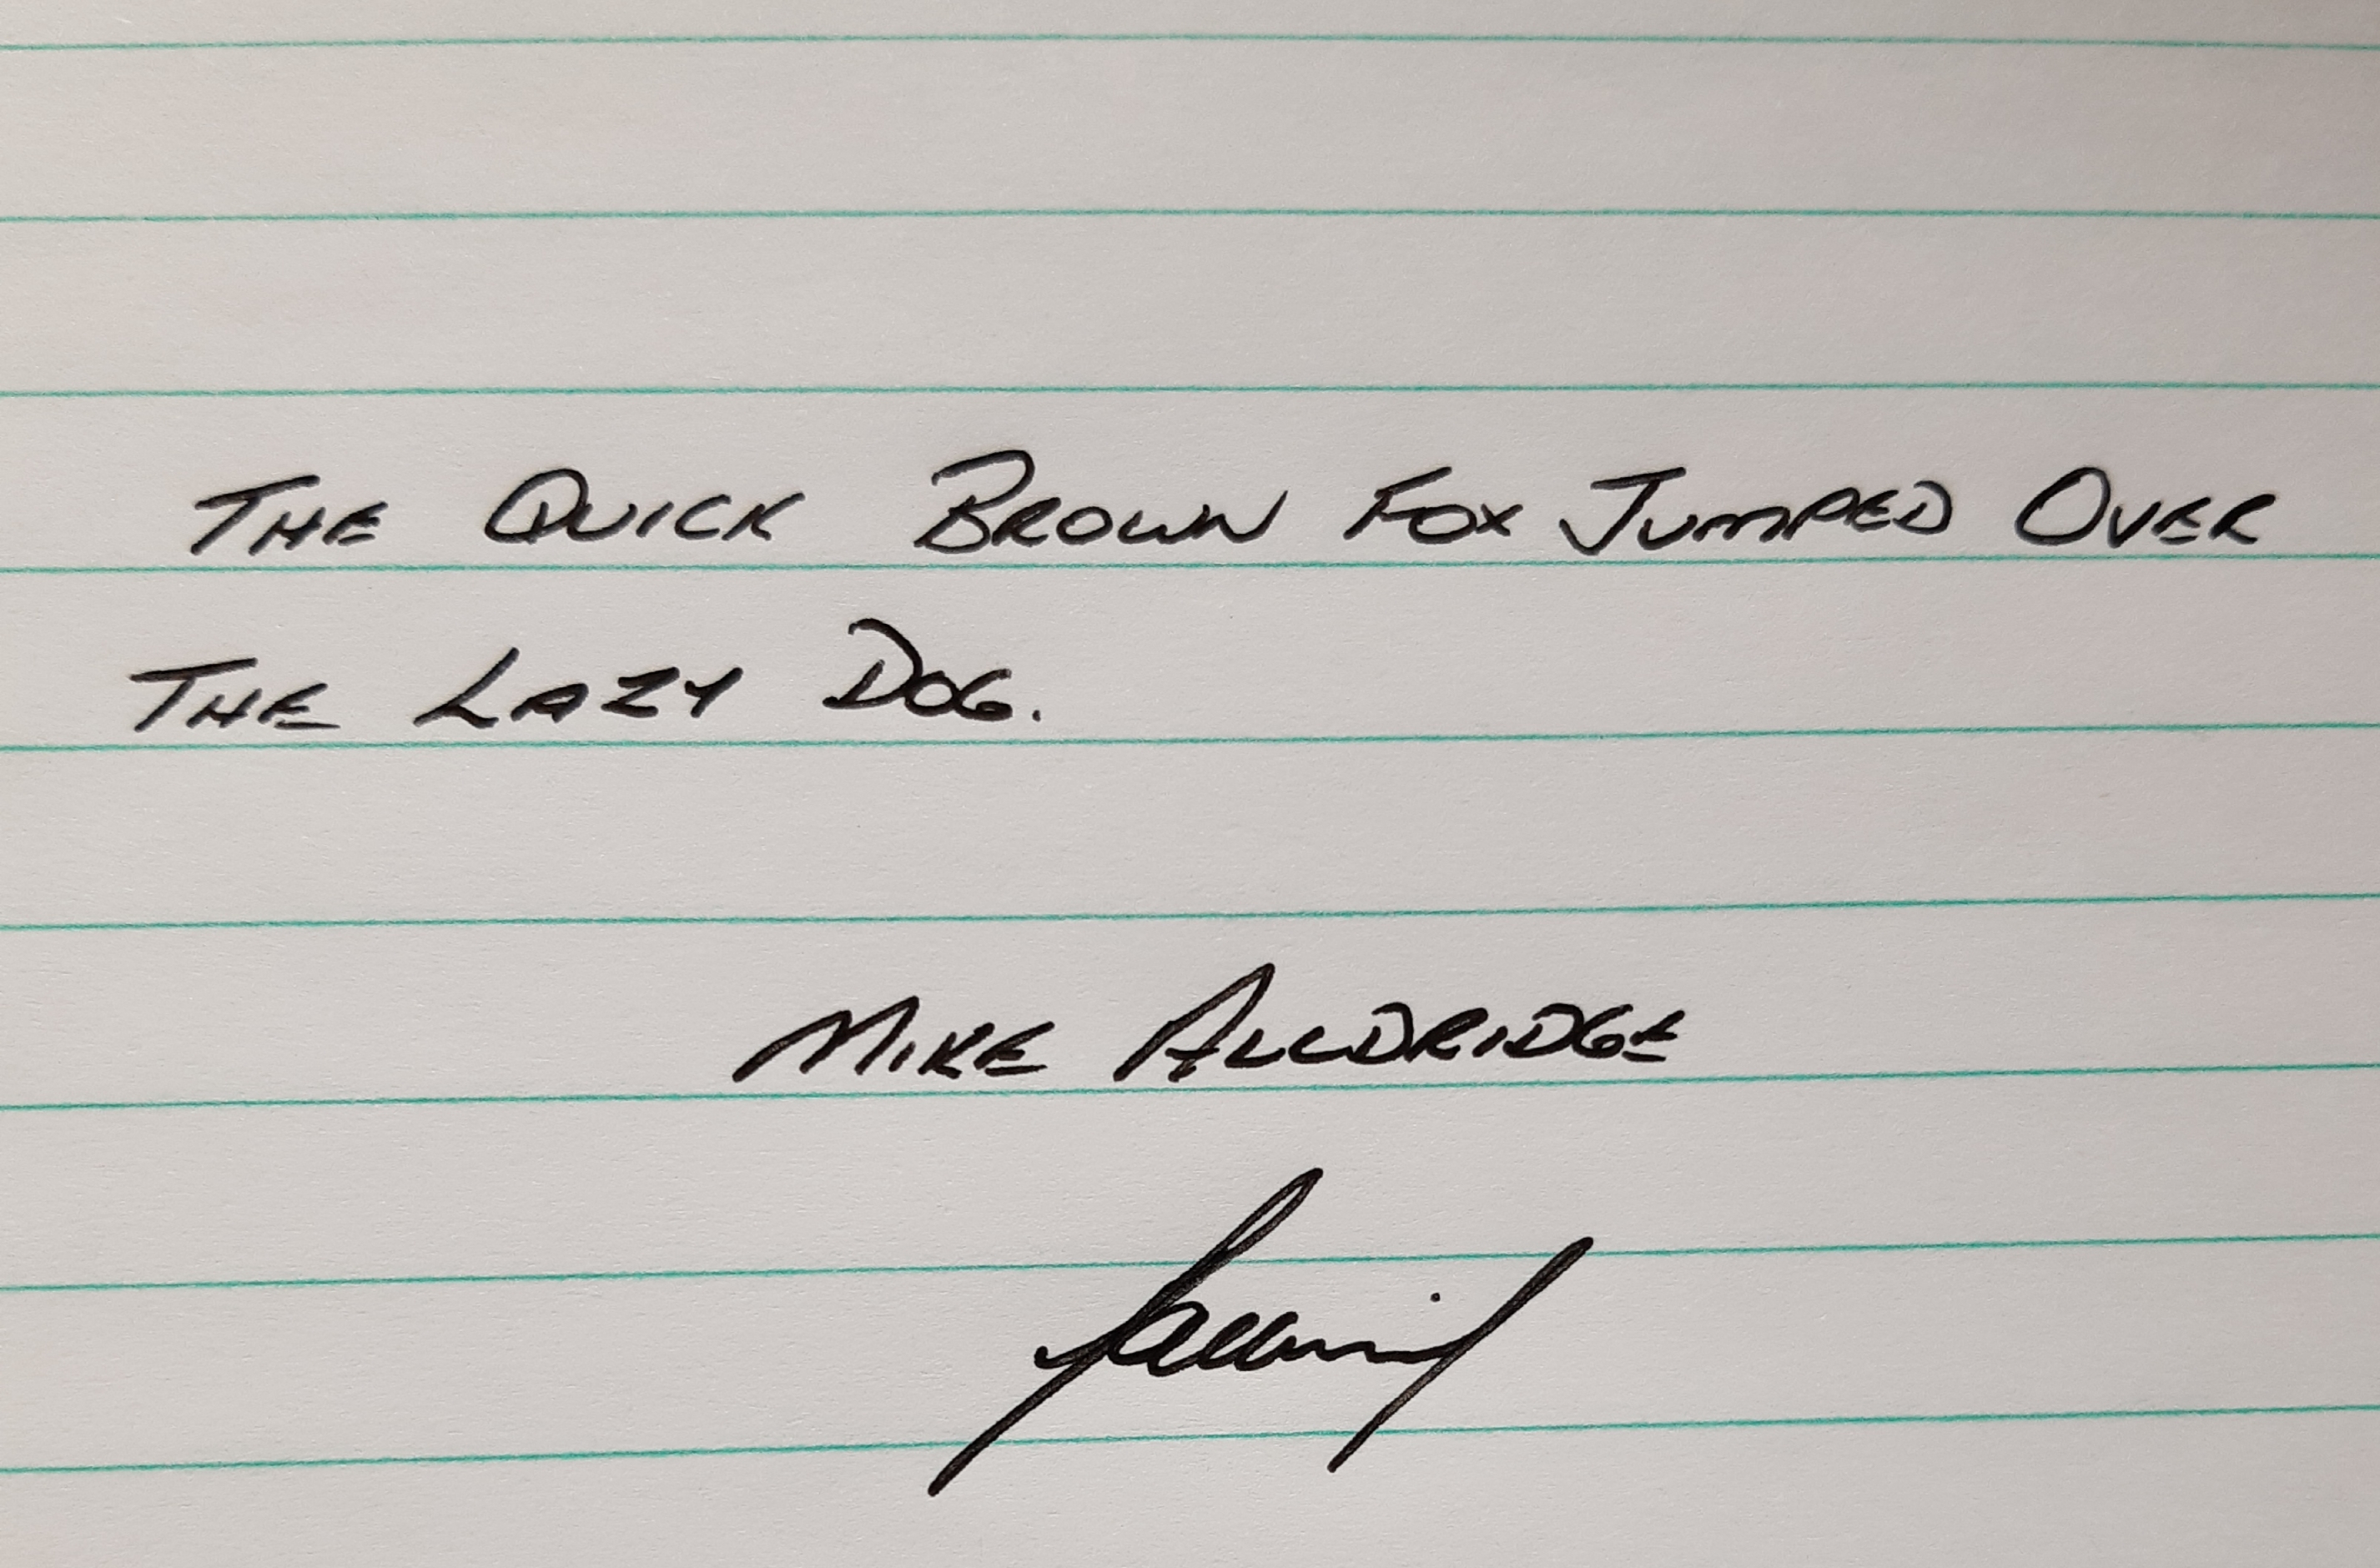 The Quick Brown Fox Jumped Over
The Lazy Dog.
Mike Alldridge